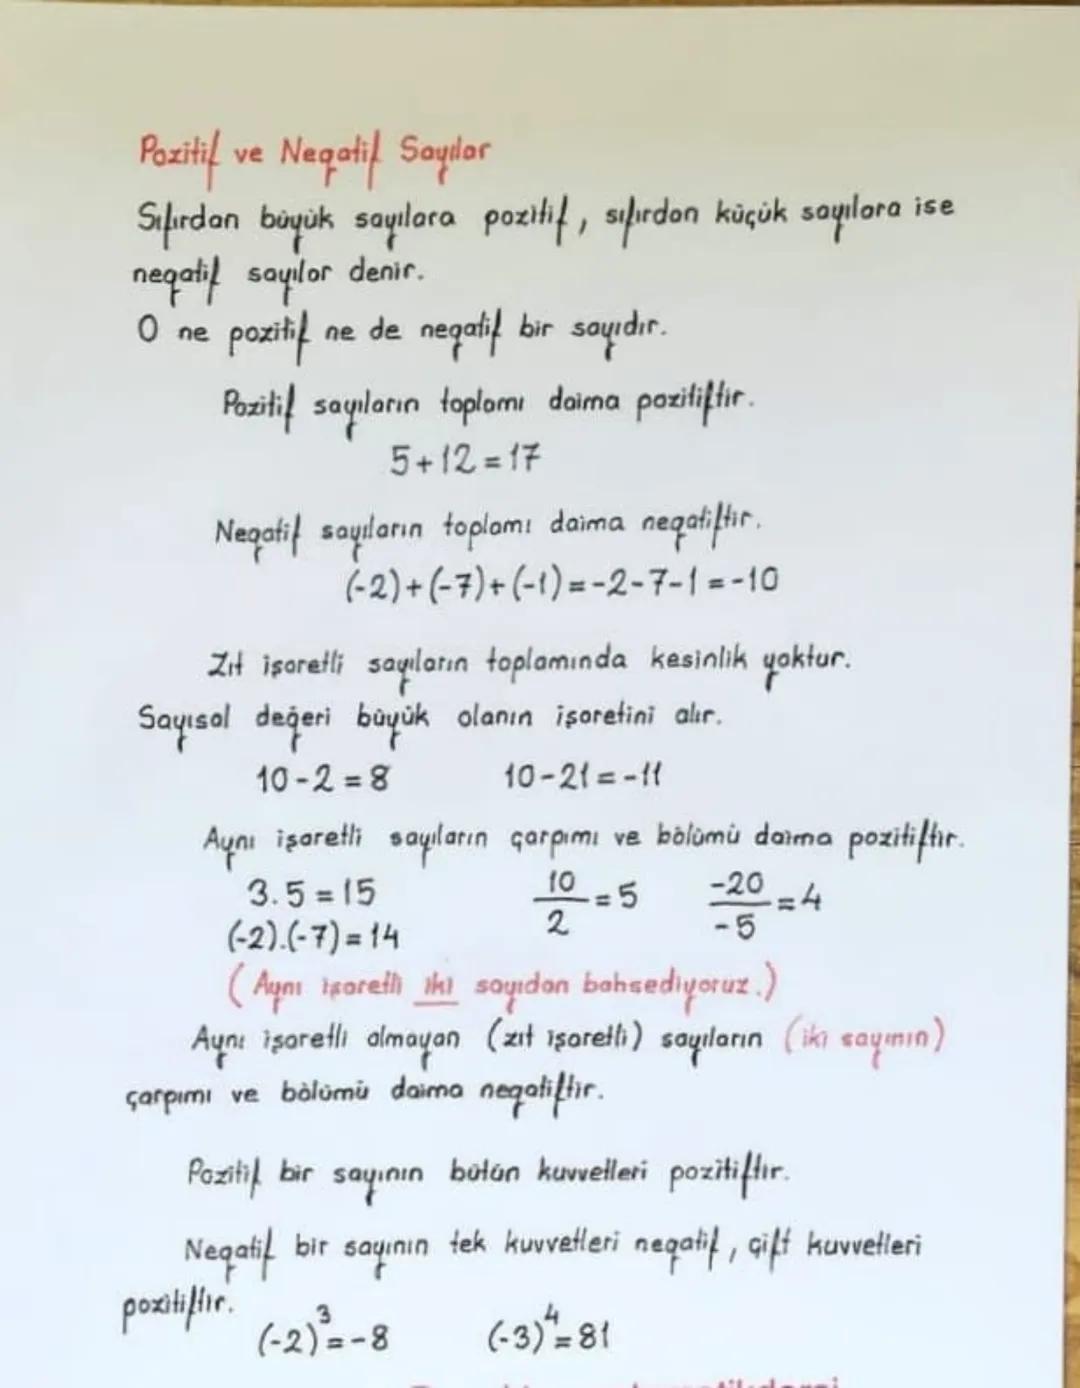 Pozitif ve Negatif Sayılar
Sıfırdan büyük sayılara pozitif, sıfırdan küçük sayılara ise
negatif sayılar denir.
0 ne pozitif ne de negatif bir sayıdır.
Pozitif sayıların toplamı daima pozitiftir.
5+12=17
Negatif sayıların toplamı daima negatiftir.
(-2)+(-7)+(-1)=-2-7-1=-10
Zıt işaretli sayıların toplamında kesinlik yoktur.
Sayısal değeri büyük olanın işaretini alır.
10-2=8 10-21=-11
Aynı işaretli sayıların çarpımı ve bölümü daima pozitiftir.
3.5=15 10/2=5 -20/-5=4
(-2).(-7)=14
(Aynı işaretli iki sayıdan bahsediyoruz.)
Aynı işaretli olmayan (zıt işaretli) sayıların (iki sayının)
çarpımı ve bölümü daima negatiftir.
Pozitif bir sayının bütün kuvvetleri pozitiftir.
Negatif bir sayının tek kuvvetleri negatif, çift kuvvetleri
pozitiftir.
(-2)³=-8 (-3)⁴=81